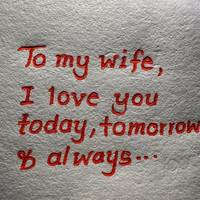 To my wife,
I love you
today, tomorrow
& always...